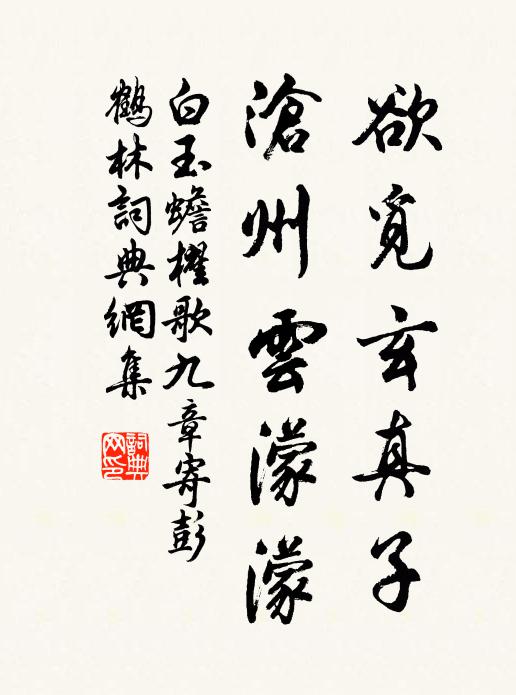 欲覓玄真子
滄州雲濛濛
白玉蟾櫂歌九章寄彭
鶴林詞典網集
詞典
网印